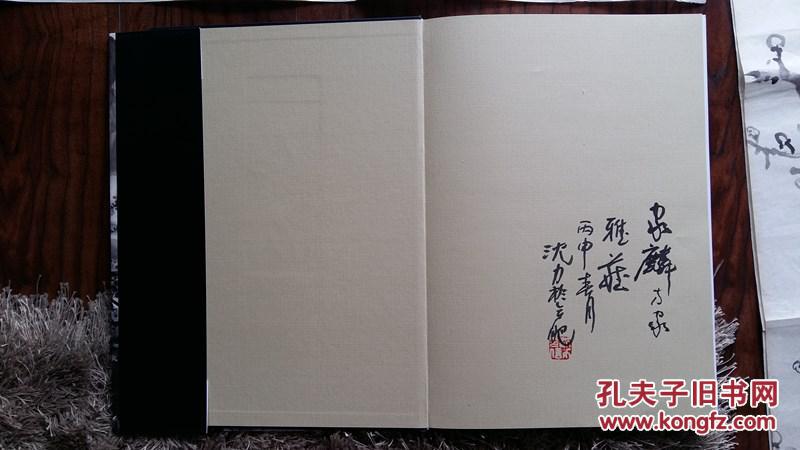 家麟方家
雅藏
丙申春月
沈力於合肥
孔夫子旧书网
www.kongfz.com